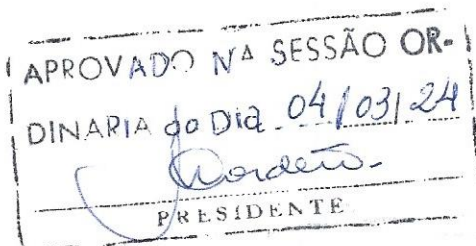 APROVADO NA SESSÃO OR-
DINARIA do Dia 04/03/24
PRESIDENTE